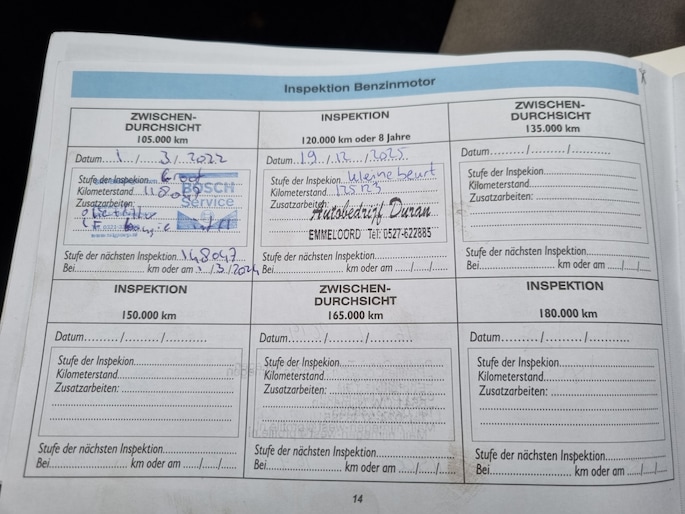 Inspektion Benzinmotor
ZWISCHEN-
DURCHSICHT
105.000 km
Datum...1.../...3.../...2022
Stufe der Inspekion Groot
Kilometerstand
Zusatzarbeiten
BOSCH
Service
Stufe der nächsten Inspektion.148047
Bei............ km oder am 1/3/2024
INSPEKTION
120.000 km oder 8 Jahre
Datum 19/12/2025
Stufe der Inspekion kleine beurt
Kilometerstand 125123
Zusatzarbeiten:
Autobedrijf Duran
EMMELOORD Tel: 0527-622885
Stufe der nächsten Inspektion............
Bei............ km oder am ...../...../.....
ZWISCHEN-
DURCHSICHT
135.000 km
Datum........./........./.........
Stufe der Inspekion............
Kilometerstand............
Zusatzarbeiten: ............
Stufe der nächsten Inspektion............
Bei............ km oder am ...../...../.....
INSPEKTION
150.000 km
Datum........./........./.........
Stufe der Inspekion............
Kilometerstand............
Zusatzarbeiten: ............
Stufe der nächsten Inspektion............
Bei............ km oder am ...../...../.....
ZWISCHEN-
DURCHSICHT
165.000 km
Datum........./........./.........
Stufe der Inspekion............
Kilometerstand............
Zusatzarbeiten: ............
Stufe der nächsten Inspektion............
Bei............ km oder am ...../...../.....
INSPEKTION
180.000 km
Datum........./........./.........
Stufe der Inspekion............
Kilometerstand............
Zusatzarbeiten: ............
Stufe der nächsten Inspektion............
Bei............ km oder am ...../...../.....
14